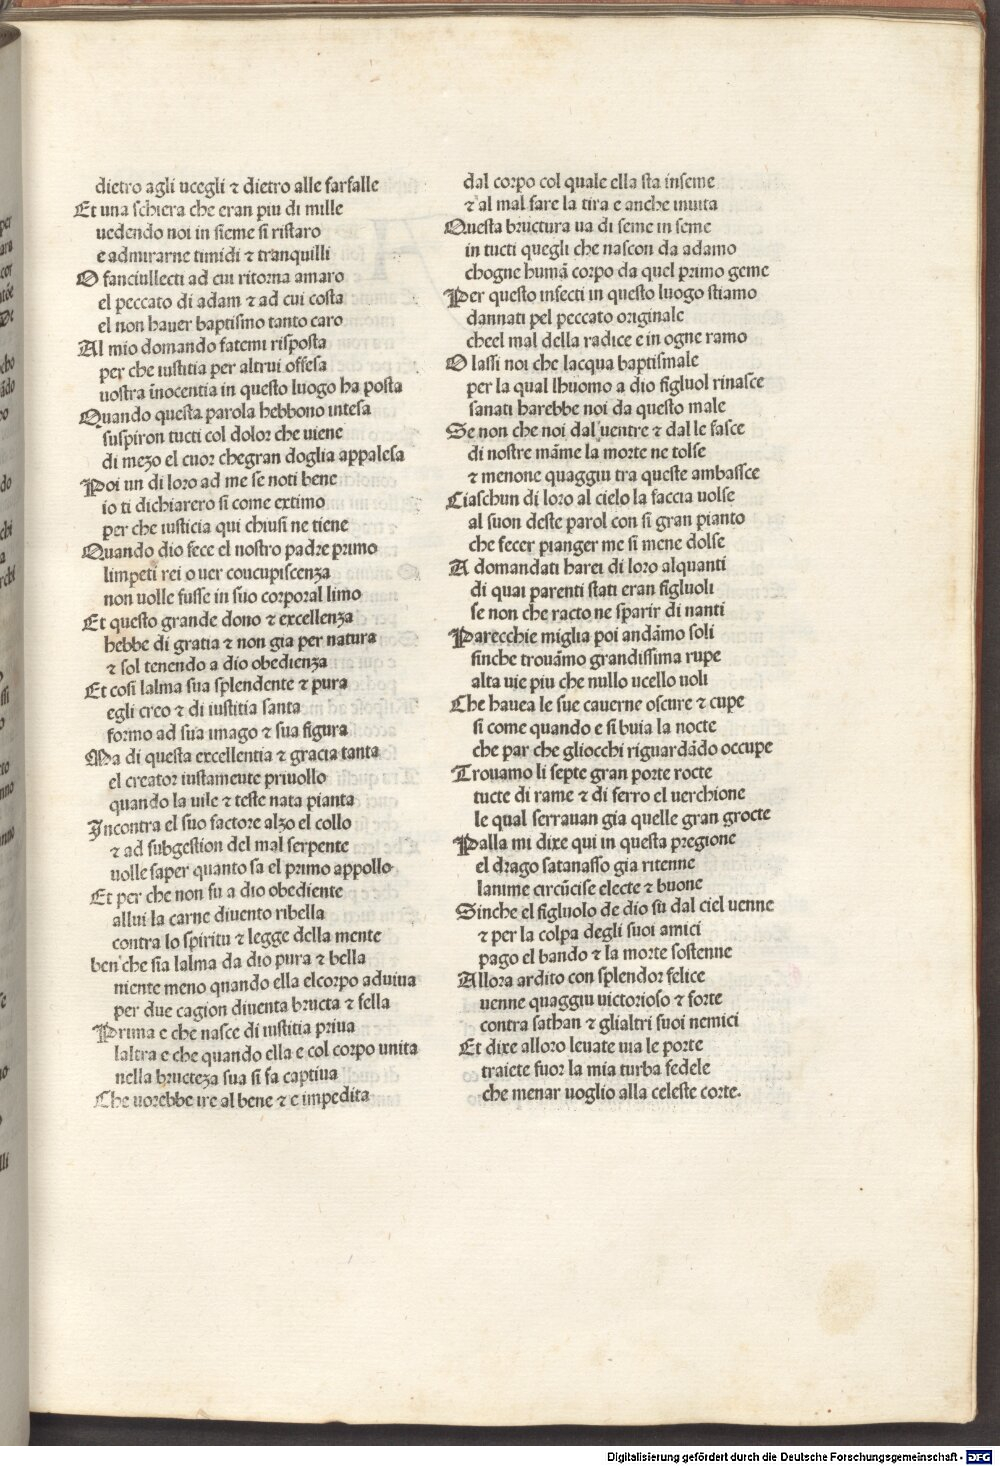 dietro agli ucegli ⁊ dietro alle farfalle
Et una schiera che eran piu di mille
uedendo noi in sieme si ristaro
e admirarne timidi ⁊ tranquilli
O fanciullecti ad cui ritorna amaro
el peccato di adam ⁊ ad cui costa
el non hauer baptismo tanto caro
Al mio domando fatemi risposta
per che iustitia per altrui offesa
uostra inocentia in questo luogo ha posta
Quando questa parola hebbono intesa
suspiron tucti col dolor che uiene
di mezo el cuor chegran doglia appalesa
Poi un di loro ad me se noti bene
io ti dichiarero si come extimo
per che iusticia qui chiusi ne tiene
Quando dio fece el nostro padre primo
limpeti rei o uer coucupiscenza
non uolle fusse in suo corporal limo
Et questo grande dono ⁊ excellenza
hebbe di gratia ⁊ non gia per natura
⁊ sol tenendo a dio obedienza
Et cosi lalma sua splendente ⁊ pura
egli creo ⁊ di iustitia santa
formo ad sua imago ⁊ sua figura
Ma di questa excellentia ⁊ gracia tanta
el creator iustamente priuollo
quando la uile ⁊ teste nata pianta
Incontra el suo factore alzo el collo
⁊ ad subgestion del mal serpente
uolle saper quanto sa el primo appollo
Et per che non fu a dio obediente
allui la carne diuento ribella
contra lo spiritu ⁊ legge della mente
ben che sia lalma da dio pura ⁊ bella
niente meno quando ella elcorpo aduiua
per due cagion diuenta bructa ⁊ fella
Prima e che nasce di iustitia priua
laltra e che quando ella e col corpo unita
nella bructeza sua si fa captiua
Che uorebbe ire al bene ⁊ e impedita
dal corpo col quale ella sta inseme
⁊ al mal fare la tira e anche inuita
Questa bructura ua di seme in seme
in tucti quegli che nascon da adamo
chogne humā corpo da quel primo geme
Per questo infecti in questo luogo stiamo
dannati pel peccato originale
cheel mal della radice e in ogne ramo
O lassi noi che lacqua baptismale
per la qual lhuomo a dio figluol rinasce
sanati harebbe noi da questo male
Se non che noi dal uentre ⁊ dal le fasce
di nostre māme la morte ne tolse
⁊ menone quaggiu tra queste ambassce
Ciaschun di loro al cielo la faccia uolse
al suon deste parol con si gran pianto
che fecer pianger me si mene dolse
A domandati harei di loro alquanti
di quai parenti stati eran figluoli
se non che racto ne sparir di nanti
Parecchie miglia poi andāmo soli
finche trouāmo grandissima rupe
alta uie piu che nullo ucello uoli
Che hauea le sue cauerne oscure ⁊ cupe
si come quando e si buia la nocte
che par che gliocchi riguardādo occupe
Trouamo li septe gran porte rocte
tucte di rame ⁊ di ferro el uerchione
le qual serrauan gia quelle gran grocte
Palla mi dixe qui in questa pregione
el drago satanasso gia ritenne
lanime circūcise electe ⁊ buone
Sinche el figluolo de dio su dal ciel uenne
⁊ per la colpa degli suoi amici
pago el bando ⁊ la morte sostenne
Allora ardito con splendor felice
uenne quaggiu uictorioso ⁊ forte
contra sathan ⁊ glialtri suoi nemici
Et dixe alloro leuate uia le porte
traiete fuor la mia turba fedele
che menar uoglio alla celeste corte.
Digitalisierung gefördert durch die Deutsche Forschungsgemeinschaft - DFG